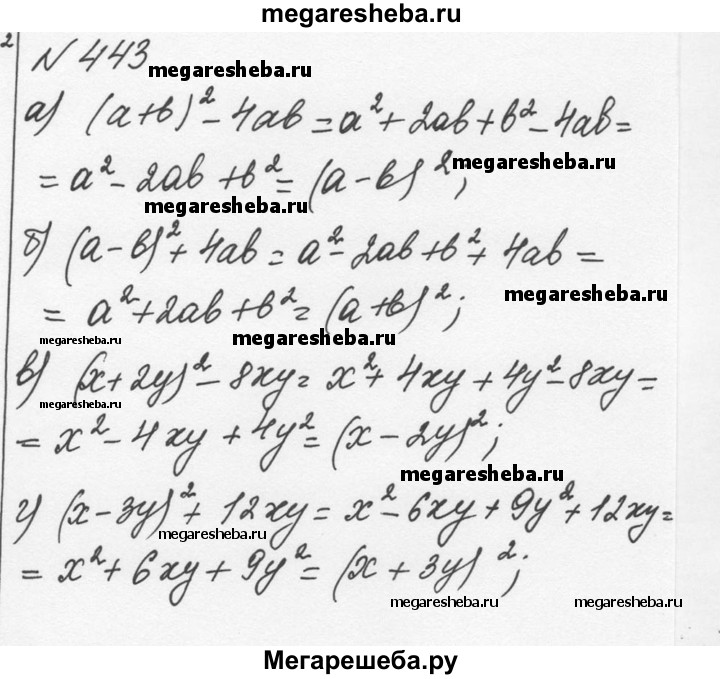 megaresheba.ru
2
N 443
megaresheba.ru
а) (a+b)² - 4ab = a² + 2ab + b² - 4ab =
= a² - 2ab + b² = (a-b)²;
megaresheba.ru
megaresheba.ru
б) (a-b)² + 4ab = a² - 2ab + b² + 4ab =
= a² + 2ab + b² = (a+b)²;
megaresheba.ru
megaresheba.ru
megaresheba.ru
в) (x+2y)² - 8xy = x² + 4xy + 4y² - 8xy =
megaresheba.ru
= x² - 4xy + 4y² = (x-2y)²;
megaresheba.ru
г) (x-3y)² + 12xy = x² - 6xy + 9y² + 12xy =
megaresheba.ru
= x² + 6xy + 9y² = (x+3y)²;
megaresheba.ru megaresheba.ru
Мегарешеба.ру